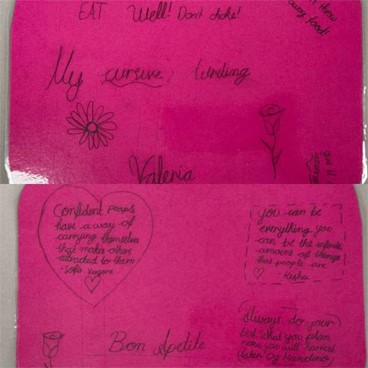 EAT Well! Don't choke!
away food!
My cursive writing
Valeria
Confident people
have a way of
carrying themselves
that makes others
attracted to them
- Sofia Vergara
you can be
everything. you
can be the infinite
amount of things
that people are
Kesha
Bon Apetite
Always do your
best. What you plant
now, you will harvest
later. Og Mandino